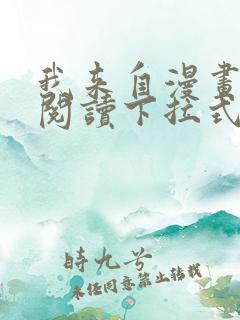 我来自漫畫
閱讀下拉式
時九兮
未经同意禁止转载